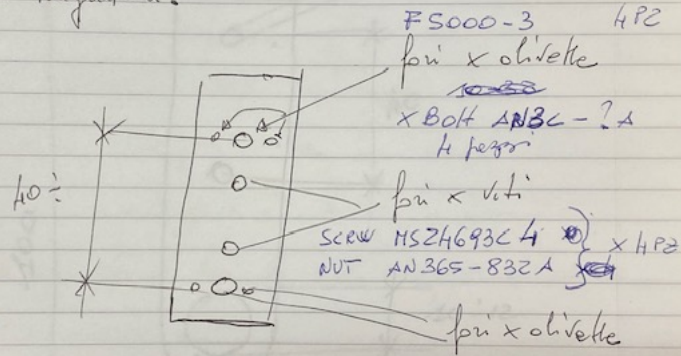 F5000-3 4PZ
fori x olivette
x Bolt AN3C-?A
4 pezzi
40÷
fori x viti
SCREW MS24693C4
NUT AN365-832A
x 4PZ
fori x olivette